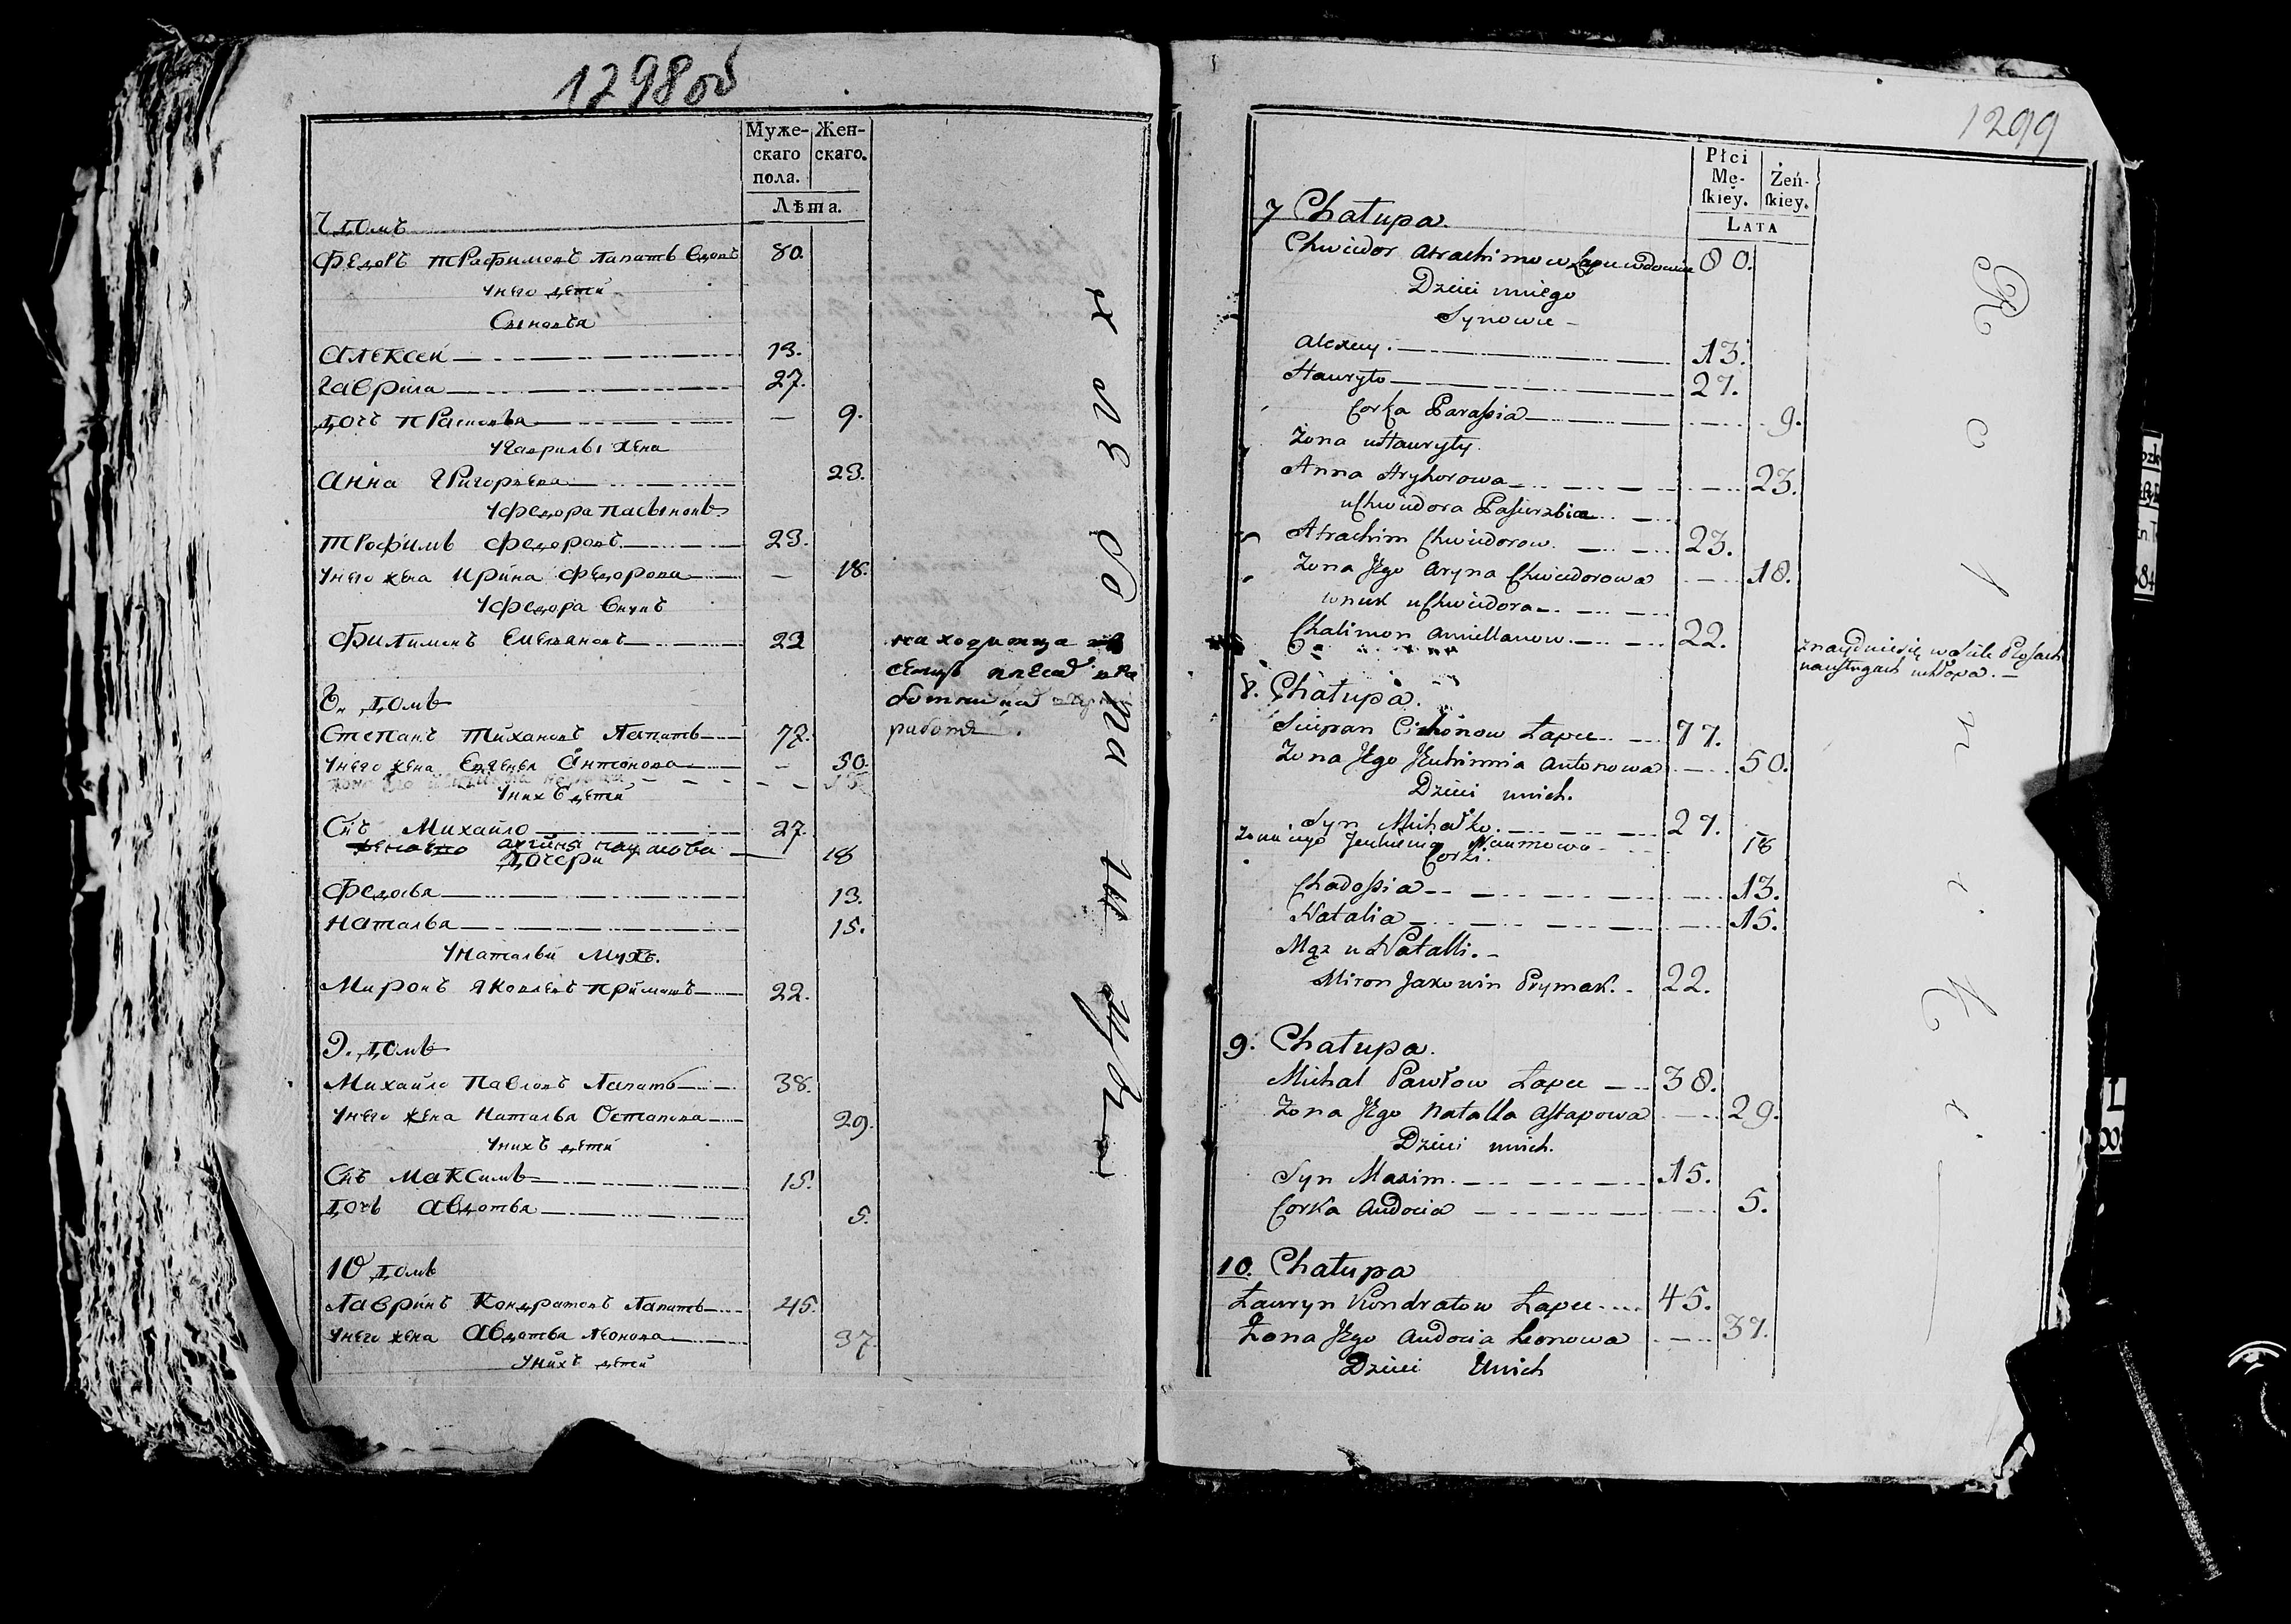 1298об
Муже-
скаго
пола.
Жен-
скаго.
Лѣта.
7 домъ
Федоръ Трафимовъ Лапать вдовъ 80.
Унего дети
Сыновья
Алексей 13.
Гаврила 27.
дочь 9.
Угаврилы жена
Анна Григорьева 23.
Уфедора пасынокъ
Трофимъ Федоровъ 23.
Унего жена Ирина Федорова 18.
Уфедора внукъ
Филимонъ Емельяновъ 22
находитца
работе
8. домъ
Степанъ Тихановъ Лапать 77.
Унего жена Антонова 50.
Унихъ дети
Снъ Михайло 27.
наумова 18
Дочери
Федосья 13.
Наталья 15.
Унатальи Мужъ.
Миронъ Яковлевъ примакъ 22.
9. домъ
Михайло Павловъ Лапать 38.
Унего жена Наталья Остапова 29.
Унихъ дети
Снъ Максимъ 15.
Дочь Авдотья 5.
10 домъ
Лавринъ Кондратовъ Лапать 45.
Унего жена Авдотья Леонова 37.
Унихъ дети
1299
Płci
Mę-
ſkiey.
Żeń-
ſkiey.
LATA
7 Chałupa.
Chwiedor Atrachimow Łapec wdowiec 80.
Dzieci uniego
Synowie
Alexiey. 13.
Hauryło 27.
Corka Paraſsia 9.
Żona uHauryły.
Anna Hryhorowa 23.
uChwiedora Paſierzbic
Atrachim Chwiedorow. 23.
Żona Jego Aryna Chwiedorowa 18.
wnuk uChwiedora
Chalimon Amiellanow. 22.
8. Chałupa.
Sciepan Cichonow Łapec 77.
Żona Jego Jeuhinnia Antonowa 50.
Dzieci unich.
Syn Michałko. 27.
Żona iego Jeuhinia Naumowa 18
Corki.
Chadoſsia 13.
Natalia 15.
Mąż u Natalli.
Miron Jakowin Prymak. 22.
9. Chałupa.
Michał Pawłow Łapec 38.
Żona Jego Natalla Aſtapowa 29.
Dzieci unich.
Syn Maxim. 15.
Corka Audocia 5.
10. Chałupa
Łauryn Kondratow Łapec 45.
Żona Jego Audocia Leonowa 37.
Dzieci Unich
Rolniki